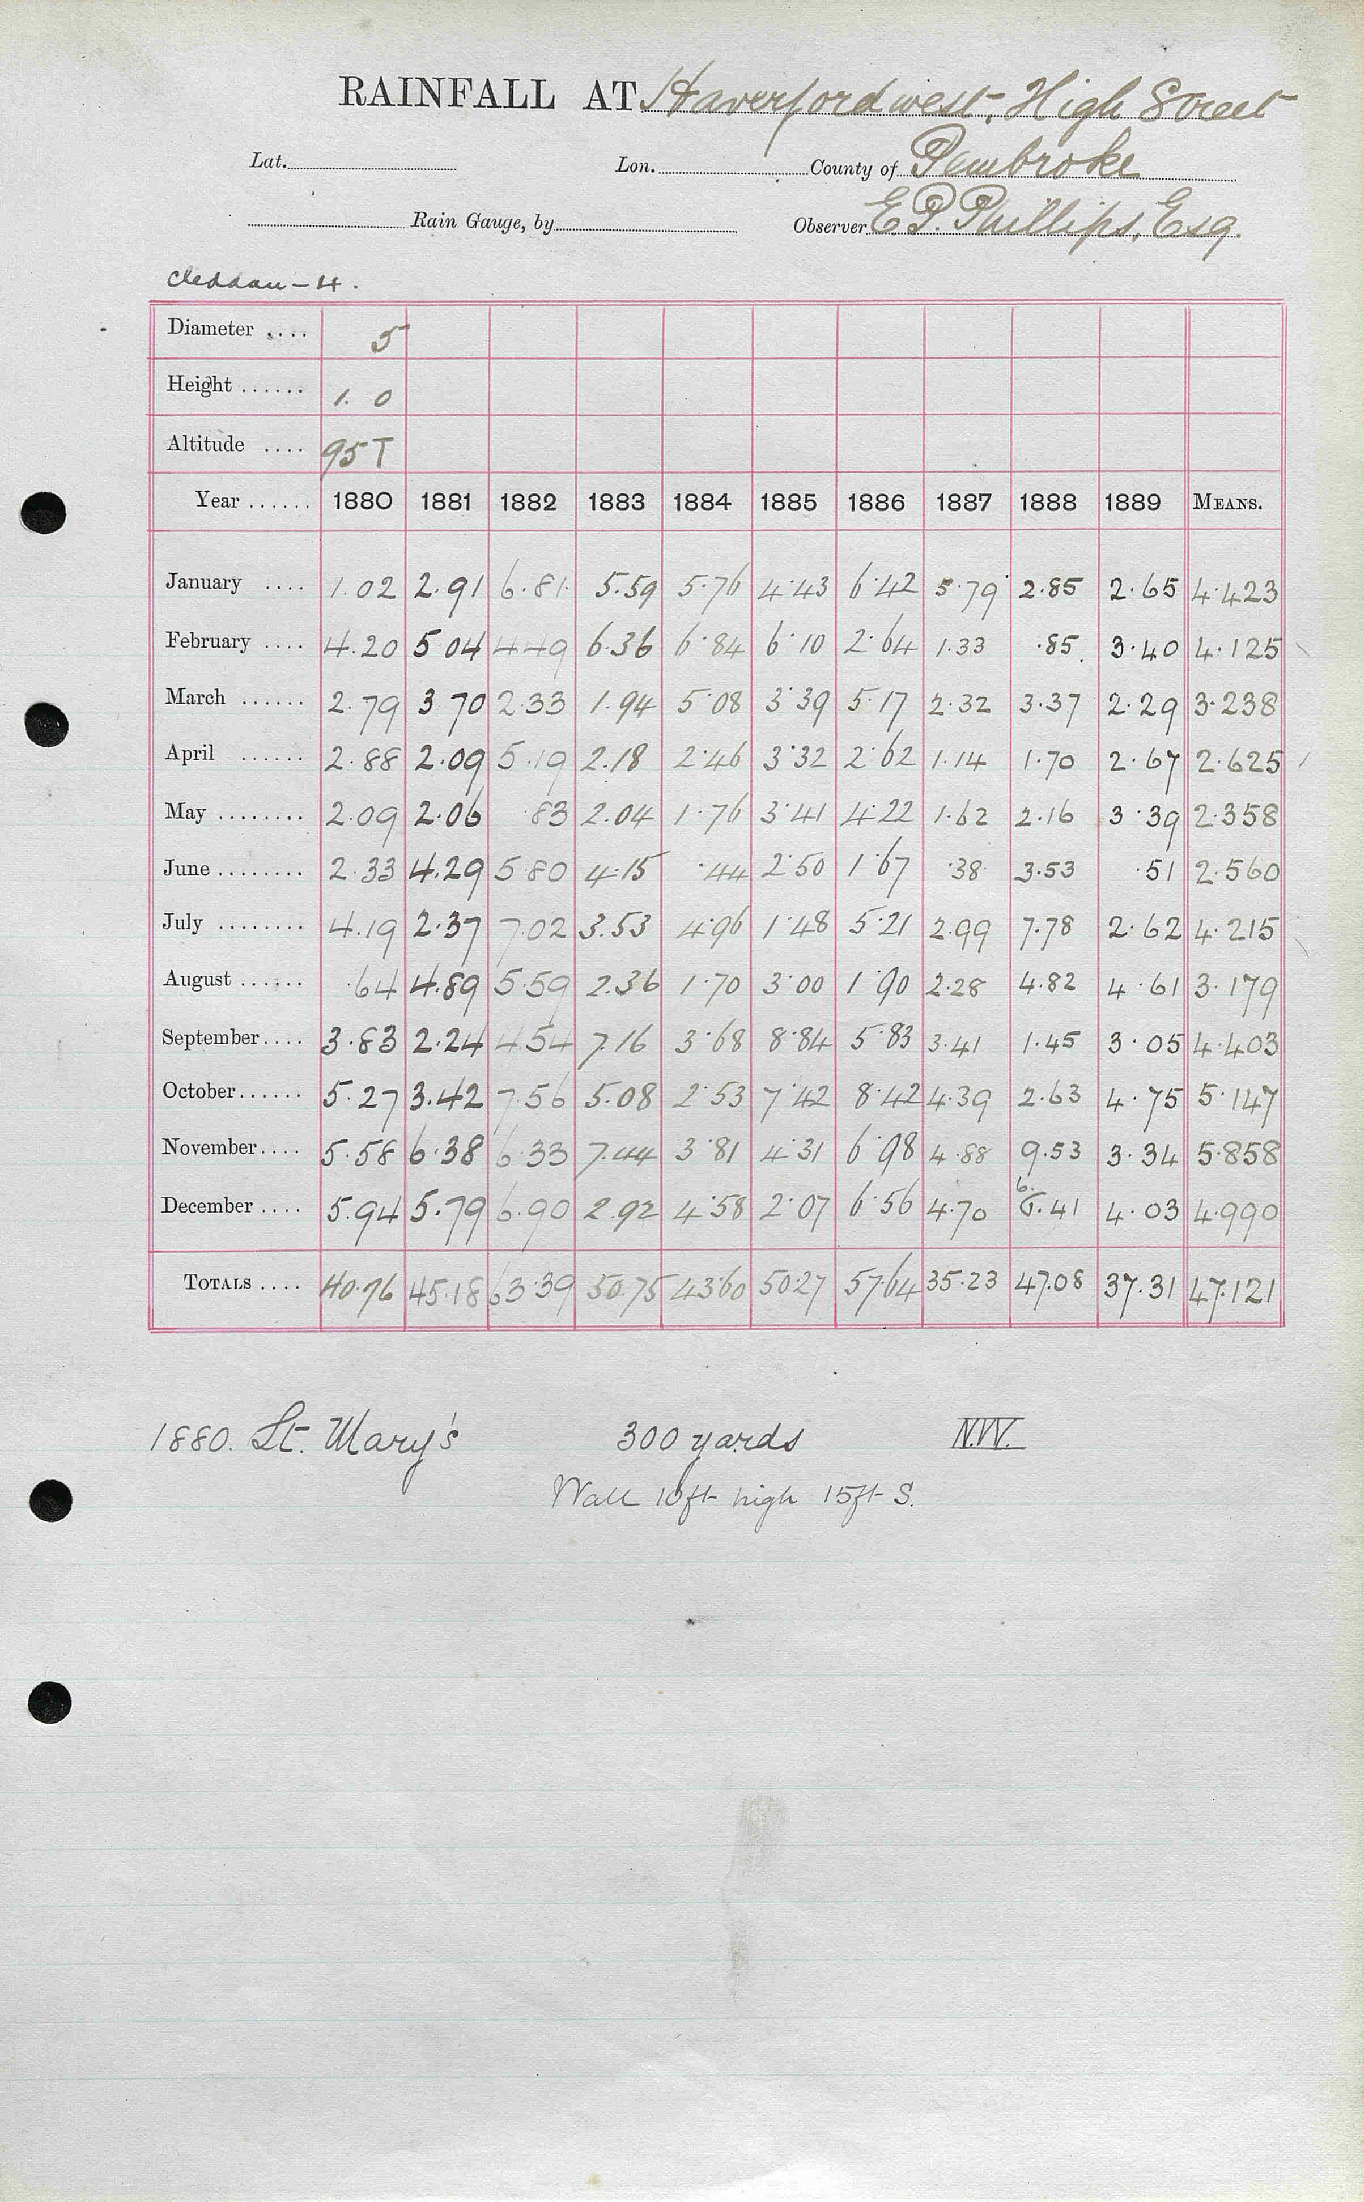 RAINFALL AT Haverfordwest, High Street
Lat. Lon. County of Pembroke
Rain Gauge, by Observer E.P. Phillips, Esq.
Cleddau - 4.
Diameter .... 5
Height ...... 1. 0
Altitude .... 95 T
Year ...... 1880 1881 1882 1883 1884 1885 1886 1887 1888 1889 MEANS.
January .... 1.02 2.91 6.81 5.59 5.76 4.43 6.42 5.79 2.85 2.65 4.423
February .... 4.20 5 04 4.49 6.36 6.84 6.10 2.64 1.33 .85 3.40 4.125
March ...... 2.79 3 70 2.33 1.94 5.08 3.39 5.17 2.32 3.37 2.29 3.238
April ...... 2.88 2.09 5.19 2.18 2.46 3.32 2.62 1.14 1.70 2.67 2.625
May ........ 2.09 2.06 .83 2.04 1.76 3.41 4.22 1.62 2.16 3.39 2.358
June ........ 2.33 4.29 5.80 4.15 .44 2.50 1.67 .38 3.53 .51 2.560
July ........ 4.19 2.37 7.02 3.53 4.96 1.48 5.21 2.99 7.78 2.62 4.215
August ...... .64 4.89 5.59 2.36 1.70 3.00 1.90 2.28 4.82 4.61 3.179
September .... 3.83 2.24 4.54 7.16 3.68 8.84 5.83 3.41 1.45 3.05 4.403
October ...... 5.27 3.42 7.56 5.08 2.53 7.42 8.42 4.39 2.63 4.75 5.147
November .... 5.58 6.38 6.33 7.44 3.81 4.31 6.98 4.88 9.53 3.34 5.858
6.
December .... 5.94 5.79 6.90 2.92 4.58 2.07 6.56 4.70 6.41 4.03 4.990
TOTALS .... 40.76 45.18 63.39 50.75 43.60 50.27 57.64 35.23 47.08 37.31 47.121
1880. St. Mary's 300 yards N.W.
Wall 10ft high 15ft S.